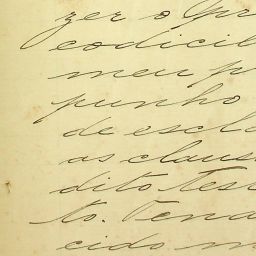 zer o Pr
codicil
meu p
punho
de escla
as claus
dito Tes
to. Tena
cido m